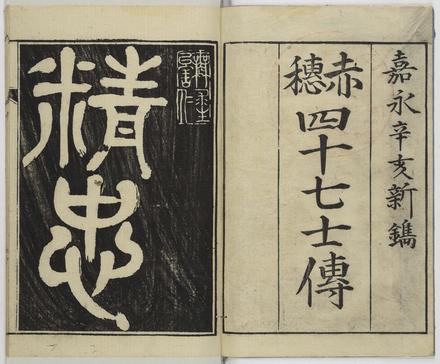 嘉永辛亥新鐫
赤穗四十七士傳
精忠